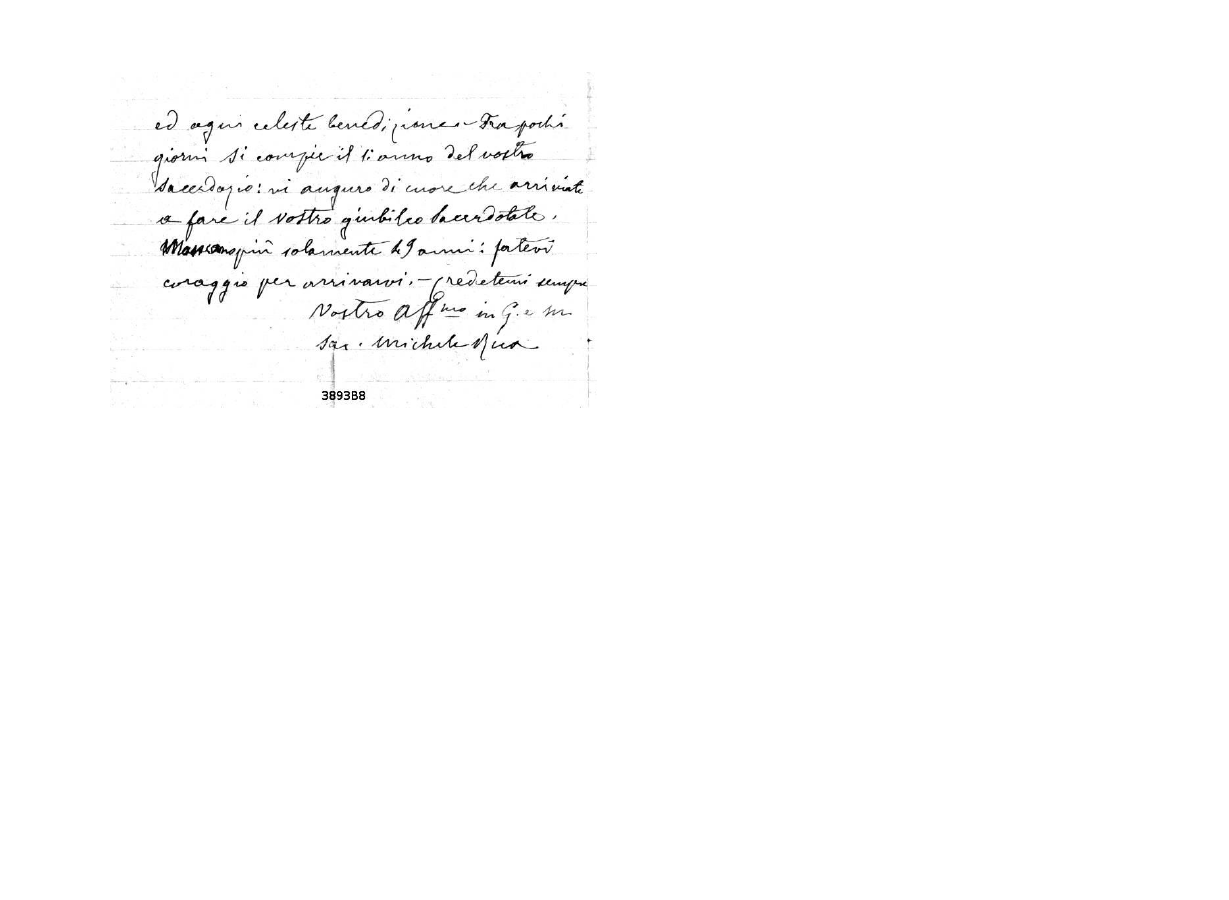 ed ogni celeste benedizione. - Fra pochi
giorni si compie il 1° anno del vostro
Sacerdozio: vi auguro di cuore che arriviate
a fare il Vostro giubileo Sacerdotale.
Mancano più solamente 49 anni: fatevi
coraggio per arrivarvi. - Credetemi sempre
Vostro Aff.mo in G. e M.
Sac. Michele Rua
3893B8